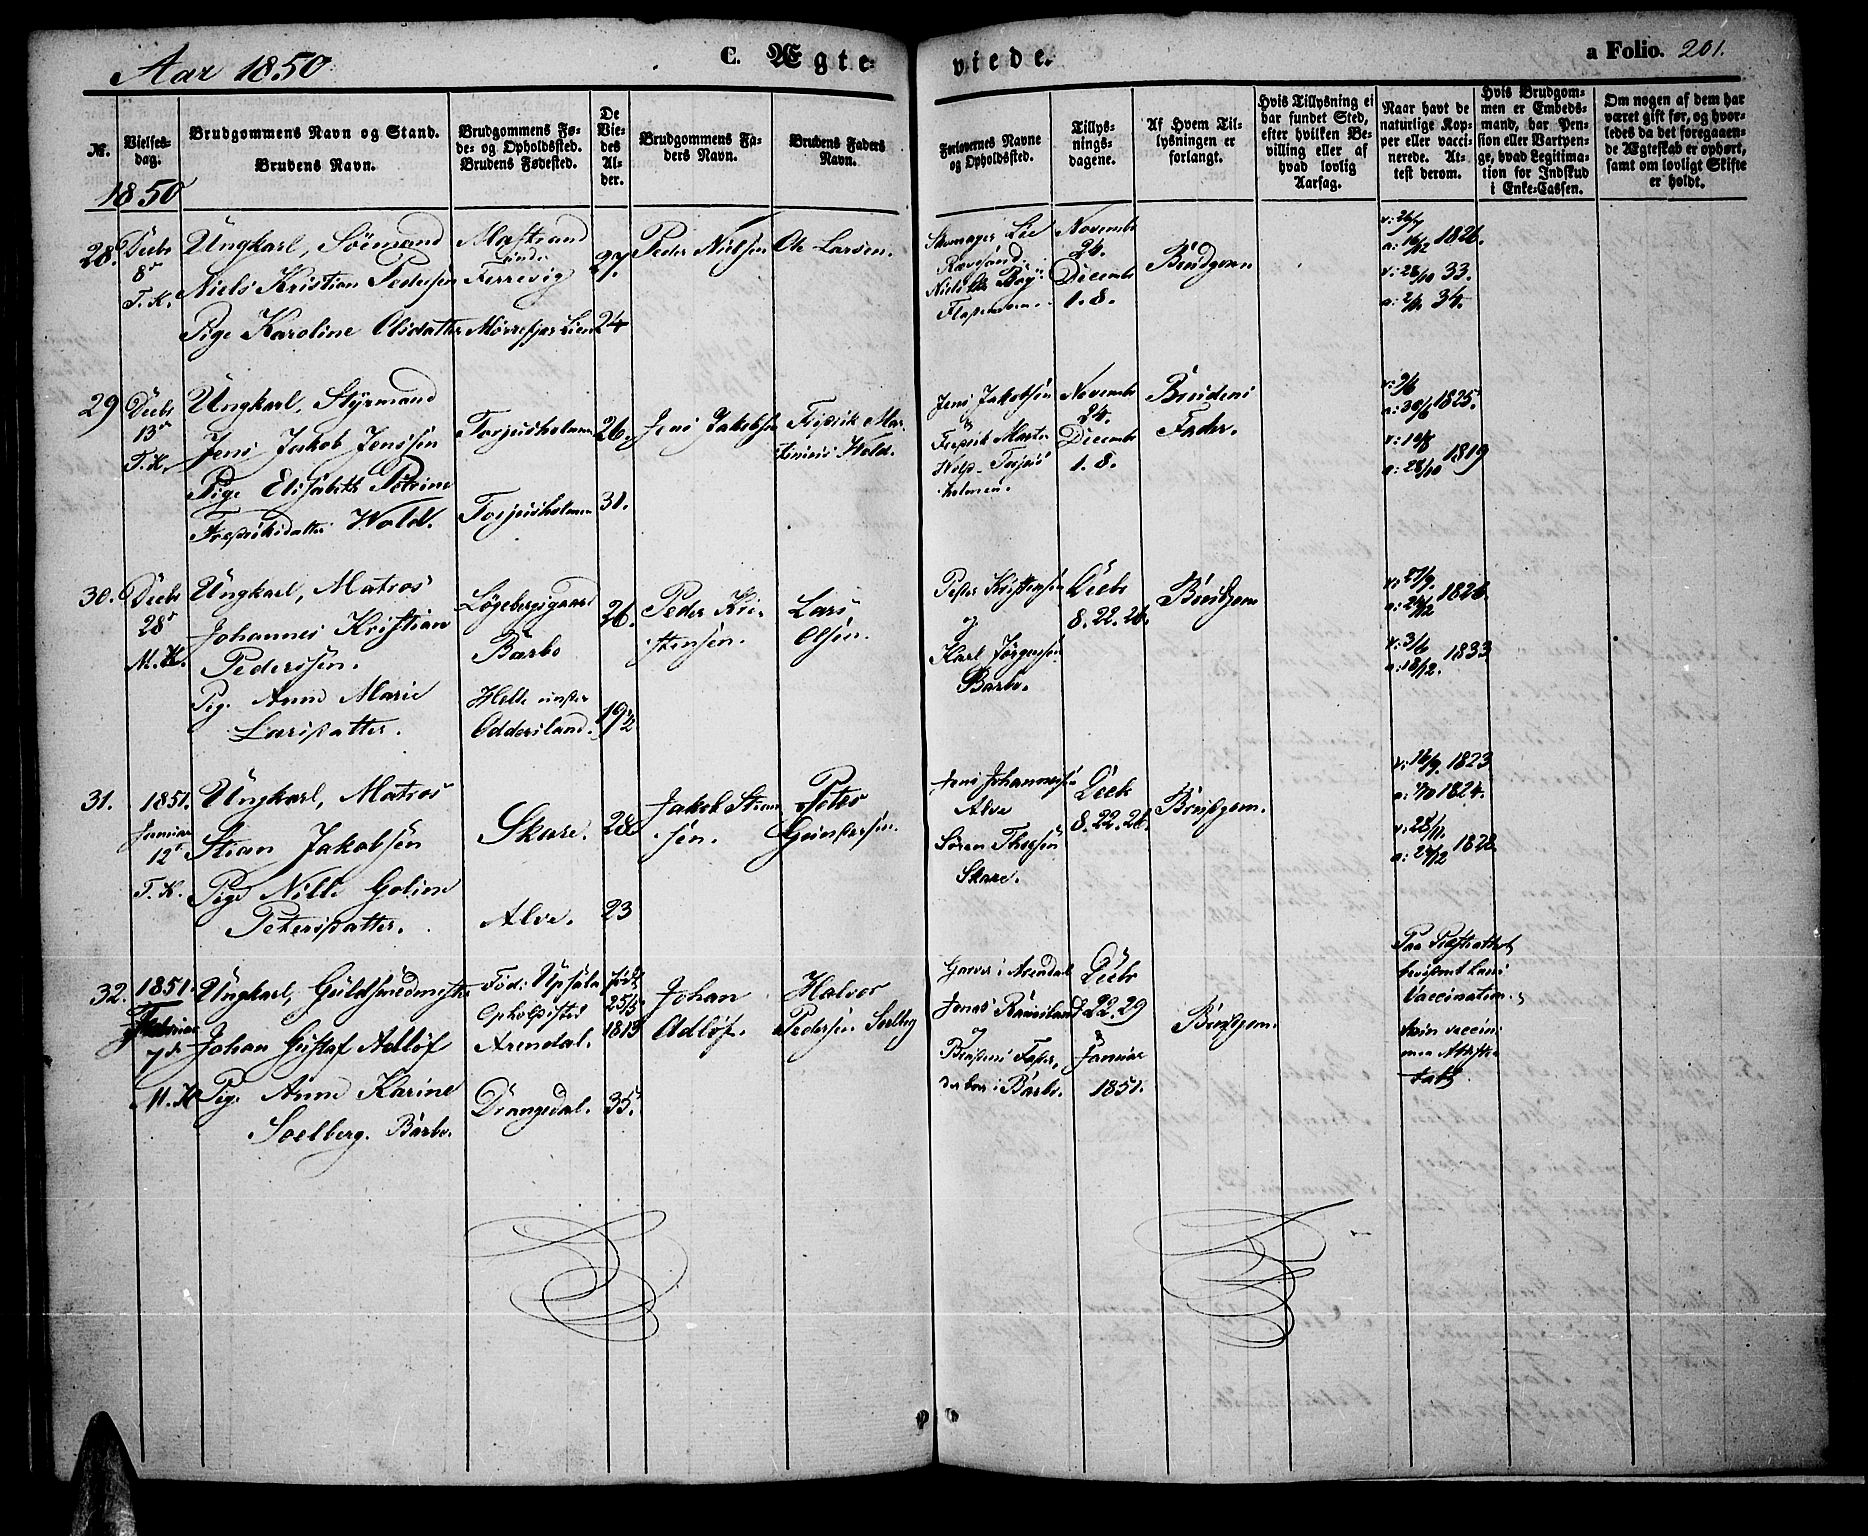 Aar 1850
C. Ægte-
viede.
a Folio. 201.
№.
Vielses-
dag.
Brudgommens Navn og Stand.
Brudens Navn.
Brudgommens Fø-
de- og Opholdssted.
Brudens Fødested.
De
Vie-
des
Al-
der.
Brudgommens Fa-
ders Navn.
Brudens Faders
Navn.
Forlovernes Navne
og Opholdssted.
Tillys-
nings-
dagene.
Af Hvem Til-
lysningen er
forlangt.
Hvis Tillysning ei
har fundet Sted,
efter hvilken Be-
villing eller af
hvad lovlig
Aarsag.
Naar havt de
naturlige Kop-
per eller vacci-
nerede. At-
test derom.
Hvis Brudgom-
men er Embeds-
mand, har Pen-
sion eller Vartpen-
ge, hvad Legitima-
tion for Indskud
i Enke-Cassen.
Om nogen af dem har
været gift før, og hvor-
ledes da det foregaaen-
de Ægteskab er ophørt,
samt om lovligt Skifte
er holdt.
1850
28.
Decbr
8de
T. K.
Ungkarl, Sömand
Niels Kristian Pedersen
Pige Karoline Olsdatter
Mastrand
Færrevig
27.
24
Peder Nielsen
Ole Larsen.
Skomager Lie
Novembr
24.
Decembr
1. 8.
Brudgom
v: 26/7
a: 16/12 1826.
v: 28/10 33.
34.
29
Decbr
13de
T. K.
Ungkarl, Styrmand
Jens Jakob Jenssen
Pige Elisabeth Petrine
Fredriksdatter Wold.
Torjusholmen
Torjusholmen
26.
31.
Jens Jakobsen
Fredrik Mar-
tinius Wold.
Jens Jakobsen
&
Fredrik Martin
Wold - Torjus-
holmen.
Novembr
24.
Decembr
1. 8.
Brudens
Fader.
v: 9/6
a: 30/6 1825.
v: 12/8
a: 28/10 1819
30.
Decbr
28de
M. K.
Ungkarl, Matros
Johannes Kristian
Pederssen.
Pig. Anne Marie
Larsdatter.
Løgebergsgaard
Barbo
Helle under
Oddersland.
26.
19 1/2
Peder Kri-
stensen.
Lars
Olsen.
Peder Kristensen
&
Karl Jørgensen
Barbo.
Decbr
8. 22. 26.
Brudgom
v: 27/9
a: 24/12 1826
v: 3/6
a: 18/12. 1833
31.
1851.
Januar
12te
T. K.
Ungkarl, Matros
Stian Jakobsen
Pige Nille Goline
Petersdatter.
Skare.
Alve.
28
23
Jakob Stian-
sen.
Peter
Gundersen.
Jens Johannesen
Alve
Søren Thorsen
Skare.
Decbr
8. 22. 26.
Brudgom.
v: 16/9. 1823
1824.
v: 28/11.
a: 24/12 1828.
32.
1851.
Februar
7de
M. K
Ungkarl, Guldsmedmester
Johan Gustaf Adlöf
Pig. Anne Karine
Soelberg. Barbo.
Fød: Upsala
Opholdssted
Arendal.
Drangedal.
født
25/5
1813
35.
Johan
Adlöf.
Halvor
Pedersen Soelberg
Garver i Arendal
Jonas Rønnesland
&
Brudens Fader,
der bor i Barbo.
Decbr
22. 29
&
Januar
1851.
Brudgom.
Vaccination